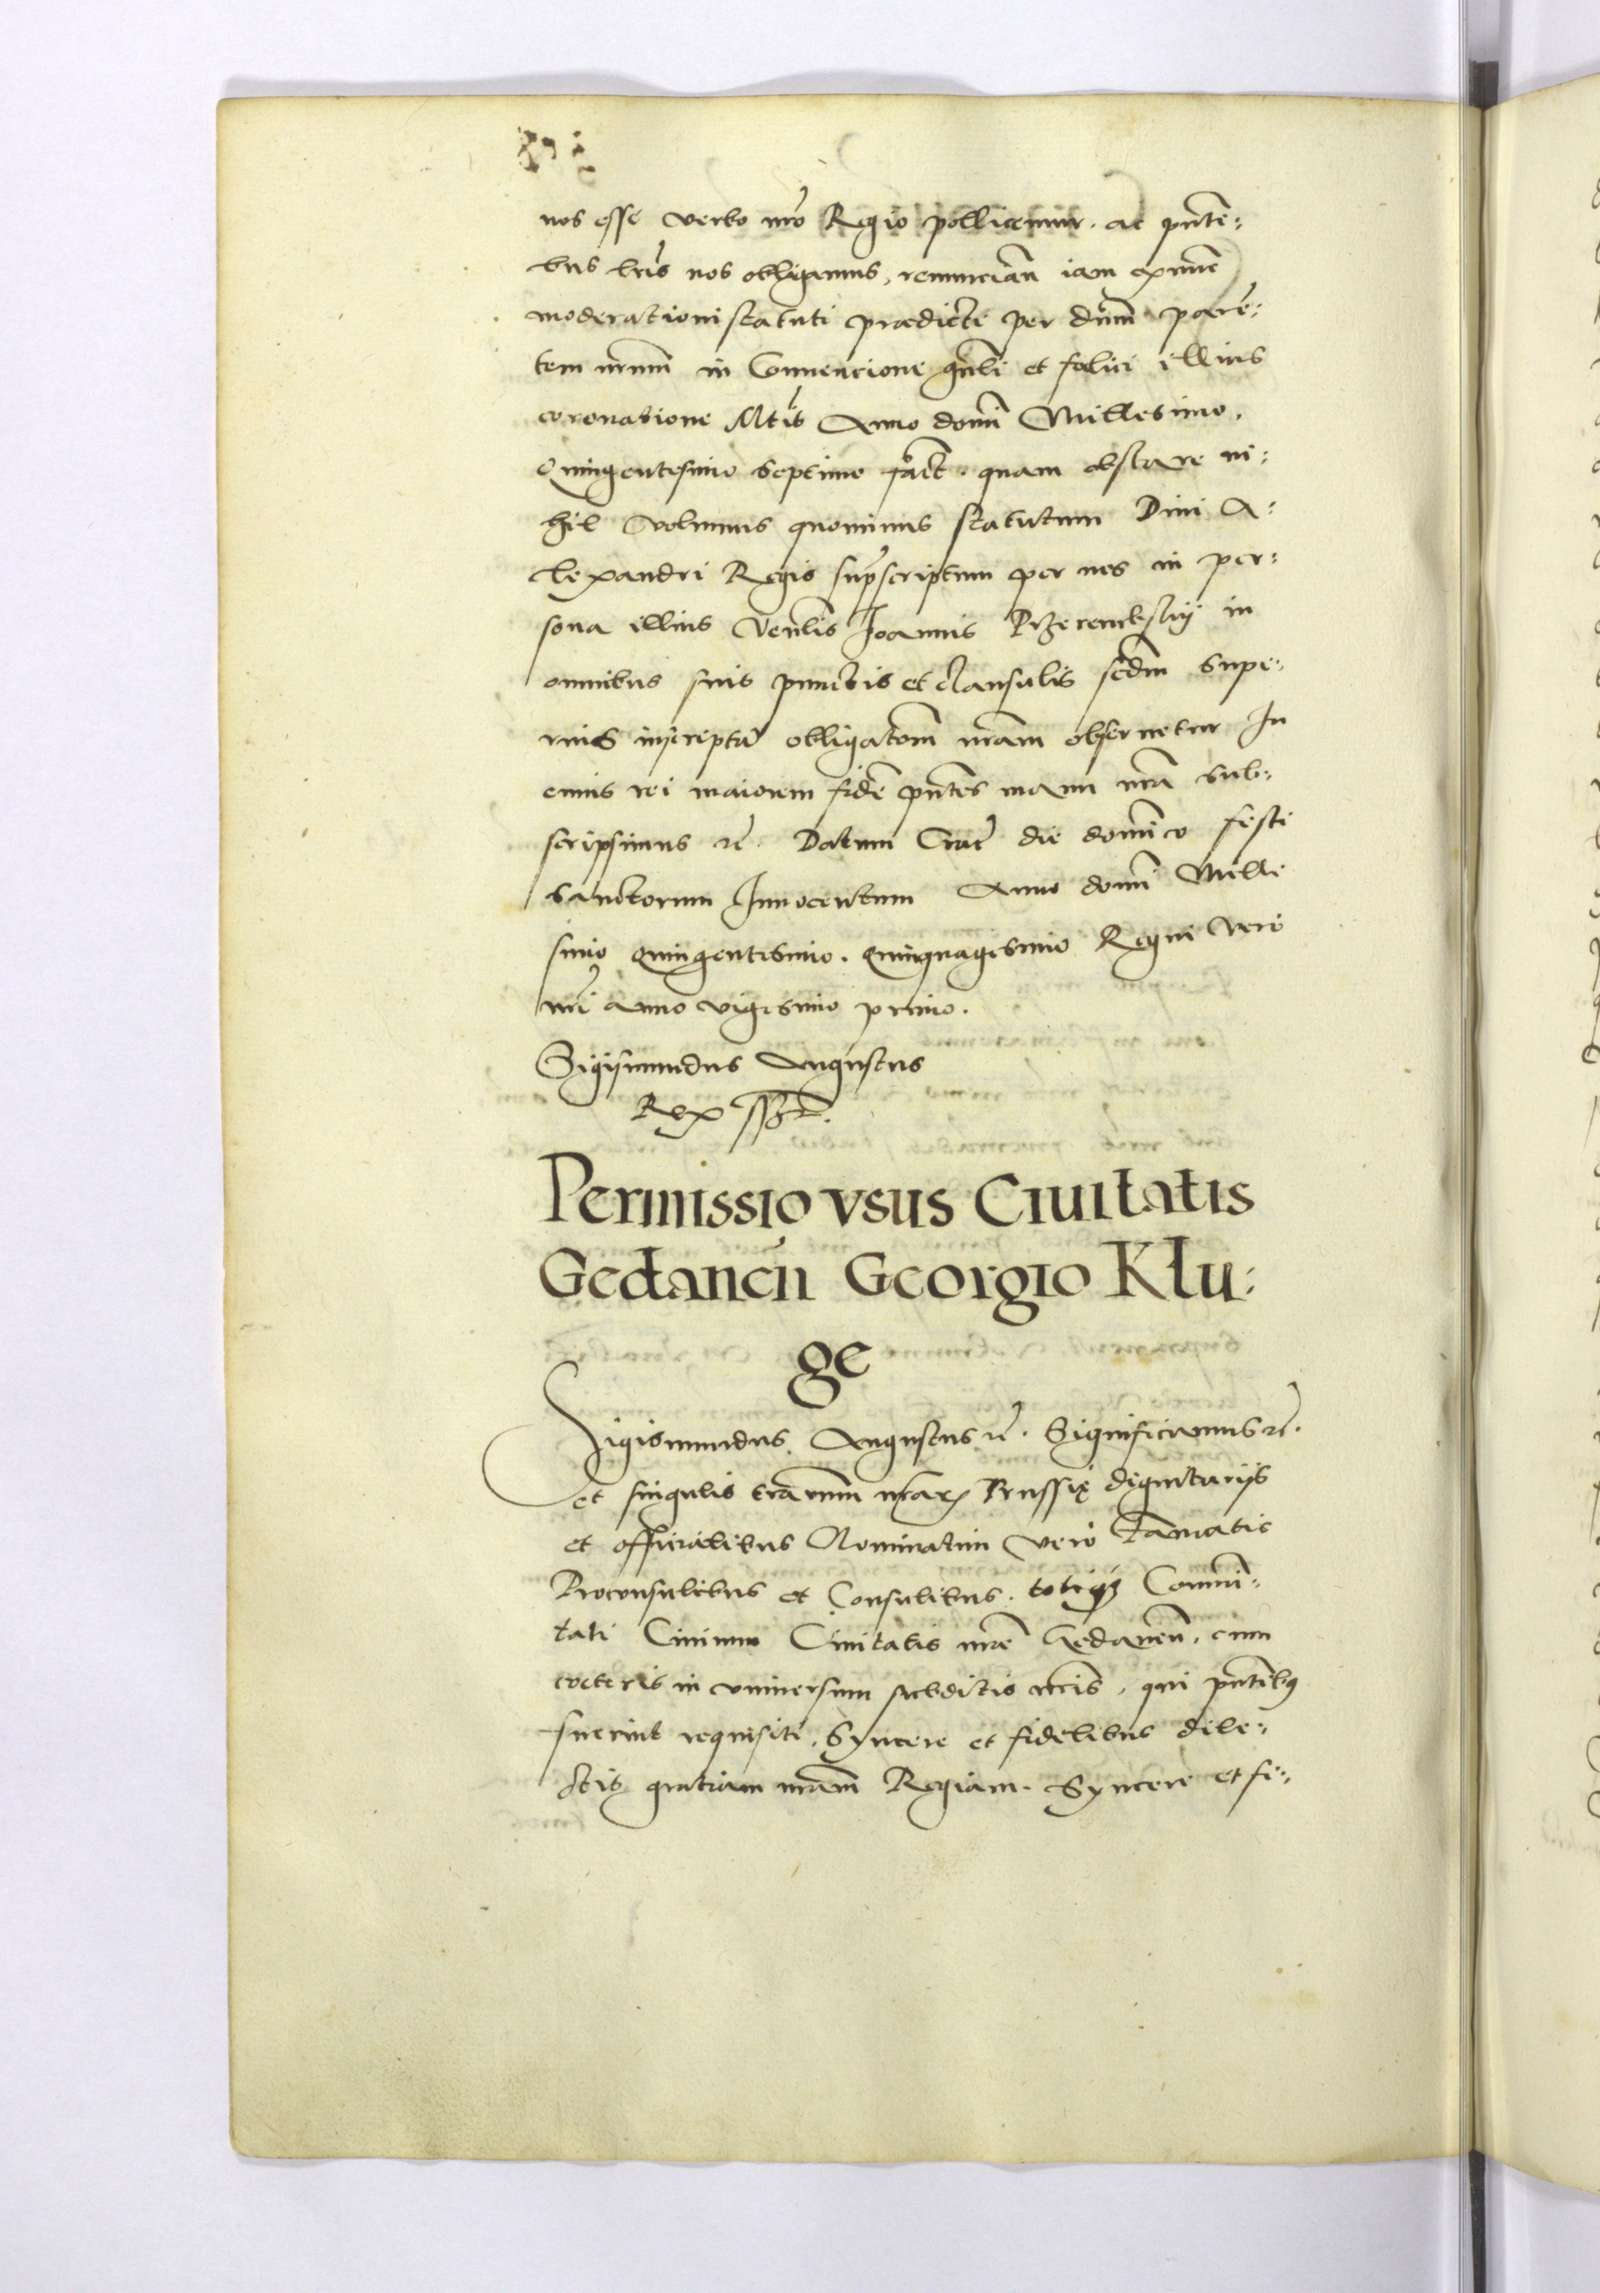 nos esse verbo nrõ Regio pollicemur. ac pnte:
bus lris nos obligamus, renuncian̄ iam ex nunc
moderationi statuti prædicte per dnm̄ paren:
tem nrm̄m in Conuencione gnli et fœlici illius
coronatione Mtis Anno domi Millesimo.
Quingentesimo septimo fact. quam obstare ni:
hil volumus quominus statutum Diui A:
lexandri Regis supscriptum per nos in per:
sona illius Venlis Joannis Przerembskij in
omnibus suis punctis et clausulis scdm supe:
rius inscriptā obligatom̄ nram̄ obseruetur In
cuius rei maiorem fidē pntes manu nrā sub:
scripsimus rc̄. Datum Crac̄ die dominico festi
Sanctorum Innocentum Anno domi Mille
simo quingentesimo. quinquagesimo Regni vero
nri anno vigesimo primo.
Sigismundus Augustus
Rex sszt.
Permissio vsus Ciuitatis
Gedanen̄ Georgio Klu:
ge
Sigismundus Augustus rc̄. Significamus rc̄.
et singulis terrarum nrarx Prussię dignitarijs
et officialibus Nominatim vero Famatis
Proconsulibus et Consulibus. totiqz Commni:
tati Ciuium Ciuitatis nrē Gedanen̄. cum
cæteris in vniuersum subditis nris, qui pntibq
fuerint requisiti. Syncere et fidelibus dile:
ctis gratiam nram̄ Regiam. Syncere et fi: